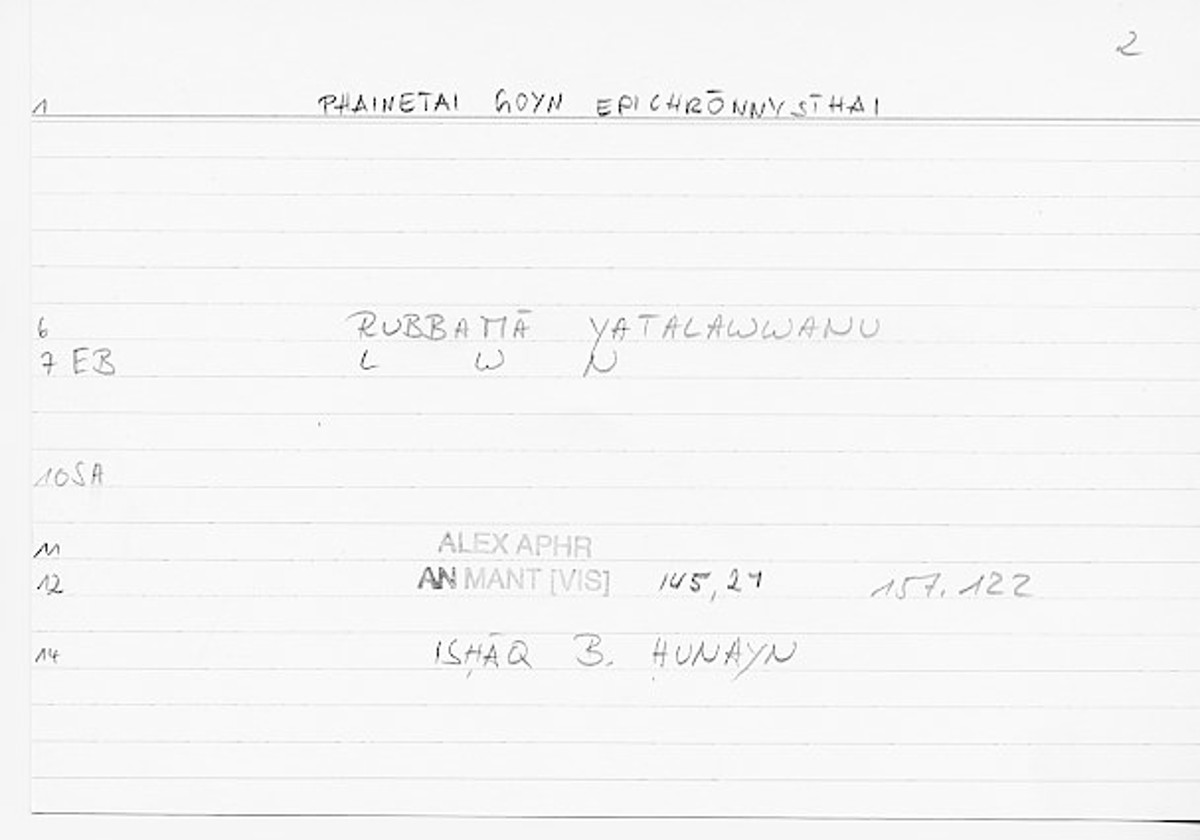 2
1 PHAINETAI GOYN EPICHRŌNNYSTHAI
6 RUBBAMĀ YATALAWWANU
7 EB L W N
10 SA
11 ALEX APHR
12 AN MANT [VIS] 145,21 157.122
14 ISḤĀQ B. ḤUNAYN